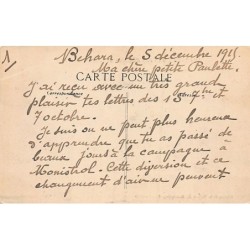 Behara, le 5 décembre 1915
Ma chère petite Paulette.
CARTE POSTALE
J'ai reçu avec un très grand
plaisir tes lettres des 13 et
7 octobre.
Je suis on ne peut plus heureux
d'apprendre que tu as passé de
beaux jours à la campagne à
Monistrol. Cette diversion et ce
changement d'air ne peuvent